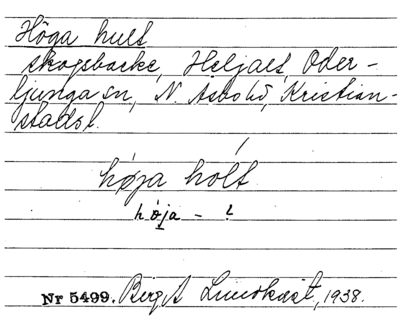 Höga hult
skogsbacke, Heljalt, Oder-
ljunga sn, N. Åsbo hd, Kristian-
stads l.
høja hólt
høja - ?
Nr 5499. Birgit Lindkvist, 1938.